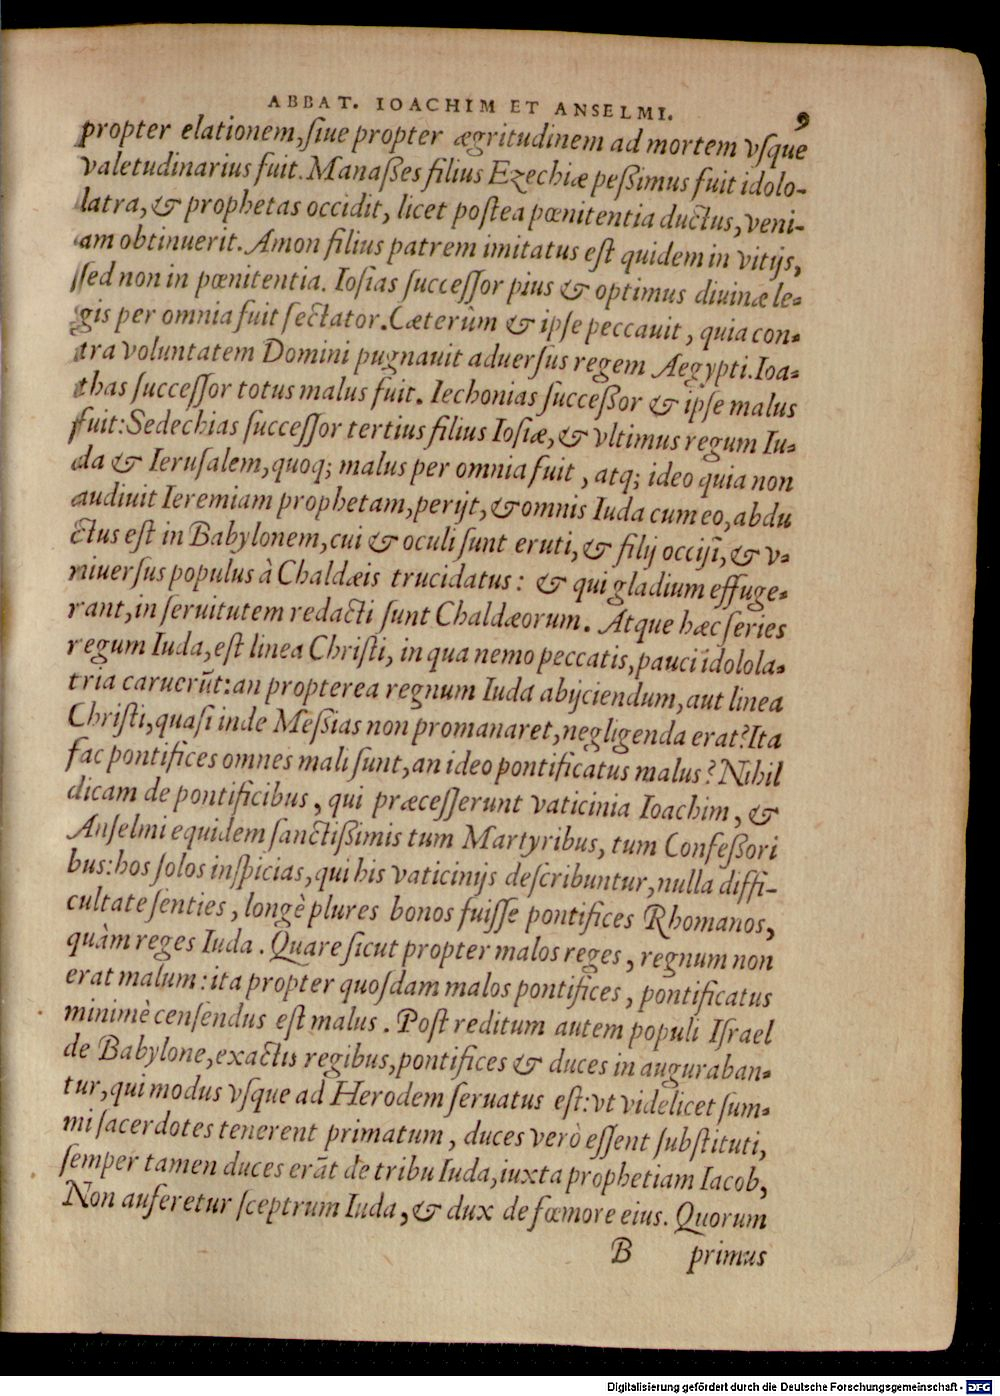 ABBAT. IOACHIM ET ANSELMI. 9
propter elationem, siue propter ægritudinem ad mortem vsque
valetudinarius fuit. Manaßes filius Ezechiæ peßimus fuit idolo-
latra, & prophetas occidit, licet postea pœnitentia ductus, veni-
am obtinuerit. Amon filius patrem imitatus est quidem in vitijs,
sed non in pœnitentia. Iosias successor pius & optimus diuinæ le-
gis per omnia fuit sectator. Cæterùm & ipse peccauit, quia con-
tra voluntatem Domini pugnauit aduersus regem Aegypti. Ioa-
thas successor totus malus fuit. Iechonias succeßor & ipse malus
fuit: Sedechias successor tertius filius Iosiæ, & vltimus regum Iu-
da & Ierusalem, quoq; malus per omnia fuit, atq; ideo quia non
audiuit Ieremiam prophetam, perijt, & omnis Iuda cum eo, abdu
ctus est in Babylonem, cui & oculi sunt eruti, & filij occisi, & v-
niuersus populus à Chaldæis trucidatus: & qui gladium effuge-
rant, in seruitutem redacti sunt Chaldæorum. Atque hæc series
regum Iuda, est linea Christi, in qua nemo peccatis, pauci idolola-
tria caruerūt: an propterea regnum Iuda abijciendum, aut linea
Christi, quasi inde Meßias non promanaret, negligenda erat? Ita
fac pontifices omnes mali sunt, an ideo pontificatus malus? Nihil
dicam de pontificibus, qui præcesserunt vaticinia Ioachim, &
Anselmi equidem sanctißimis tum Martyribus, tum Confeßori
bus: hos solos inspicias, qui his vaticinijs describuntur, nulla diffi-
cultate senties, longè plures bonos fuisse pontifices Rhomanos,
quàm reges Iuda. Quare sicut propter malos reges, regnum non
erat malum: ita propter quosdam malos pontifices, pontificatus
minimè censendus est malus. Post reditum autem populi Israel
de Babylone, exactis regibus, pontifices & duces in auguraban-
tur, qui modus vsque ad Herodem seruatus est: vt videlicet sum-
mi sacerdotes tenerent primatum, duces verò essent substituti,
semper tamen duces erāt de tribu Iuda, iuxta prophetiam Iacob,
Non auferetur sceptrum Iuda, & dux de fœmore eius. Quorum
B primus
Digitalisierung gefördert durch die Deutsche Forschungsgemeinschaft - DFG